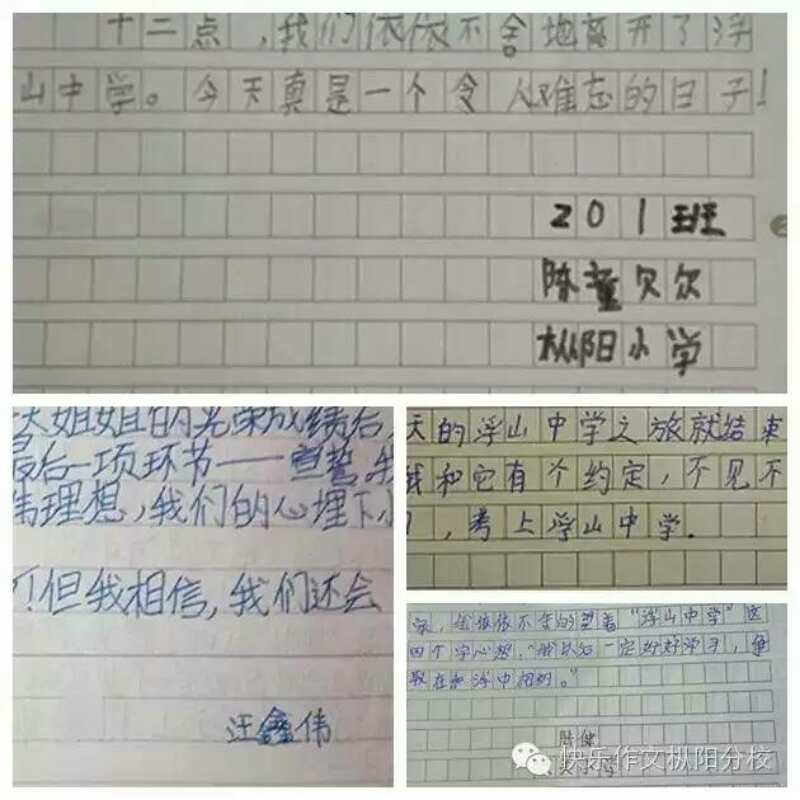 十二点，我们依依不舍地离开了浮
山中学。今天真是一个令人难忘的日子！
201班
陈童贝尔
枞阳小学
姐姐的光荣成绩后，
最后一项环节——宣誓，我
伟理想，我们的心埋下小
们！但我相信，我们还会
汪鑫伟
天的浮山中学之旅就结束
我和它有个约定，不见不
，考上浮山中学.
家，会依依不舍的望着“浮山中学”这
四个字心想，“我以后一定好好学习，争
取在和浮中相约。”
陈健
快乐作文枞阳分校